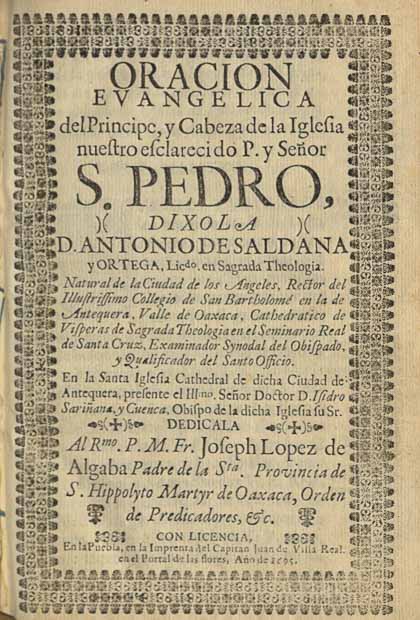 ORACION
EVANGELICA
del Principe, y Cabeza de la Iglesia
nuestro esclarecido P. y Señor
S. PEDRO,
DIXOLA
D. ANTONIO DE SALDAÑA
y ORTEGA, Licdo. en Sagrada Theologia.
Natural de la Ciudad de los Angeles, Rector del
Illustrissimo Collegio de San Bartholomé en la de
Antequera, Valle de Oaxaca, Cathedratico de
Visperas de Sagrada Theologia en el Seminario Real
de Santa Cruz, Examinador Synodal del Obispado,
y Qualificador del Santo Officio.
En la Santa Iglesia Cathedral de dicha Ciudad de
Antequera, presente el Illmo. Señor Doctor D. Isidro
Sariñana, y Cuenca, Obispo de la dicha Iglesia su Sr.
DEDICALA
Al Rmo. P. M. Fr. Joseph Lopez de
Algaba Padre de la Sta. Provincia de
S. Hippolyto Martyr de Oaxaca, Orden
de Predicadores, &c.
CON LICENCIA,
En la Puebla, en la Imprenta del Capitan Juan de Villa Real.
en el Portal de las flores, Año de